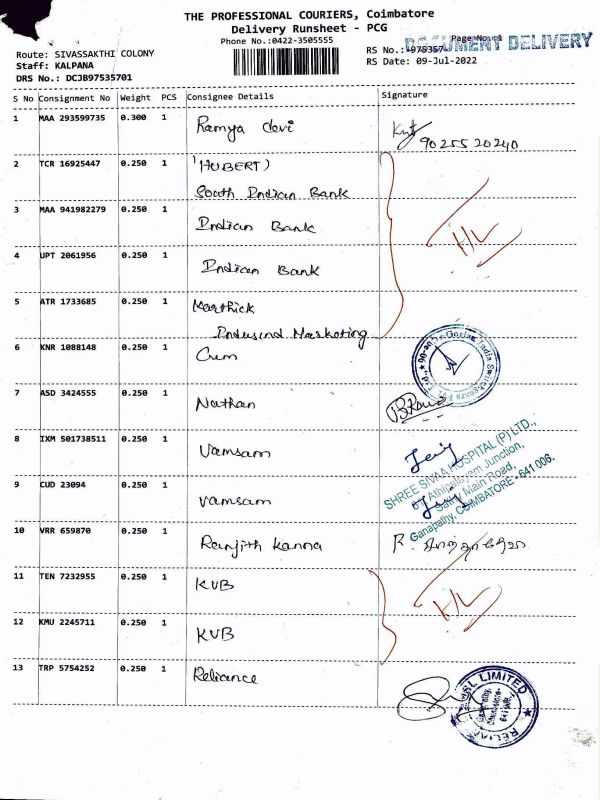 THE PROFESSIONAL COURIERS, Coimbatore
Delivery Runsheet - PCG
Phone No.:0422-3505555
Page No:1
DOCUMENT DELIVERY
Route: SIVASSAKTHI COLONY
Staff: KALPANA
DRS No.: DCJB97535701
RS No.: 975357
RS Date: 09-Jul-2022
S No Consignment No Weight PCS Consignee Details Signature
1 MAA 293599735 0.300 1 Ramya devi
9025520240
2 TCR 16925447 0.250 1 (HUBERT)
South Indian Bank
3 MAA 941982279 0.250 1 Indian Bank
H/L
4 UPT 2061956 0.250 1 Indian Bank
5 ATR 1733685 0.250 1 Karthick
Indusind Marketing
6 KNR 1088148 0.250 1 Crem
India Switchgears
7 ASD 3424555 0.250 1 Nathan
8 IXM 501738511 0.250 1 Vamsam
SHREE SIVAA HOSPITAL (P) LTD.,
Athipalayam Junction,
Sathy Main Road,
Ganapathy, COIMBATORE - 641 006.
9 CUD 23094 0.250 1 Vamsam
10 VRR 659870 0.250 1 Ranjith Kanna
11 TEN 7232955 0.250 1 KVB
H/L
12 KMU 2245711 0.250 1 KVB
13 TRP 5754252 0.250 1 Reliance
LIMITED